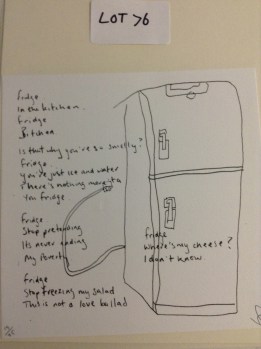 LOT > 6
fridge
In the kitchen
fridge
Bitchen
Is that why you're so smelly?
fridge
you're just ice and water
there's nothing more to
You fridge
fridge
Stop pretending
Its never ending
My poverty
fridge
Where's my cheese?
I don't know
fridge
Stop freezing my salad
This is not a love ballad